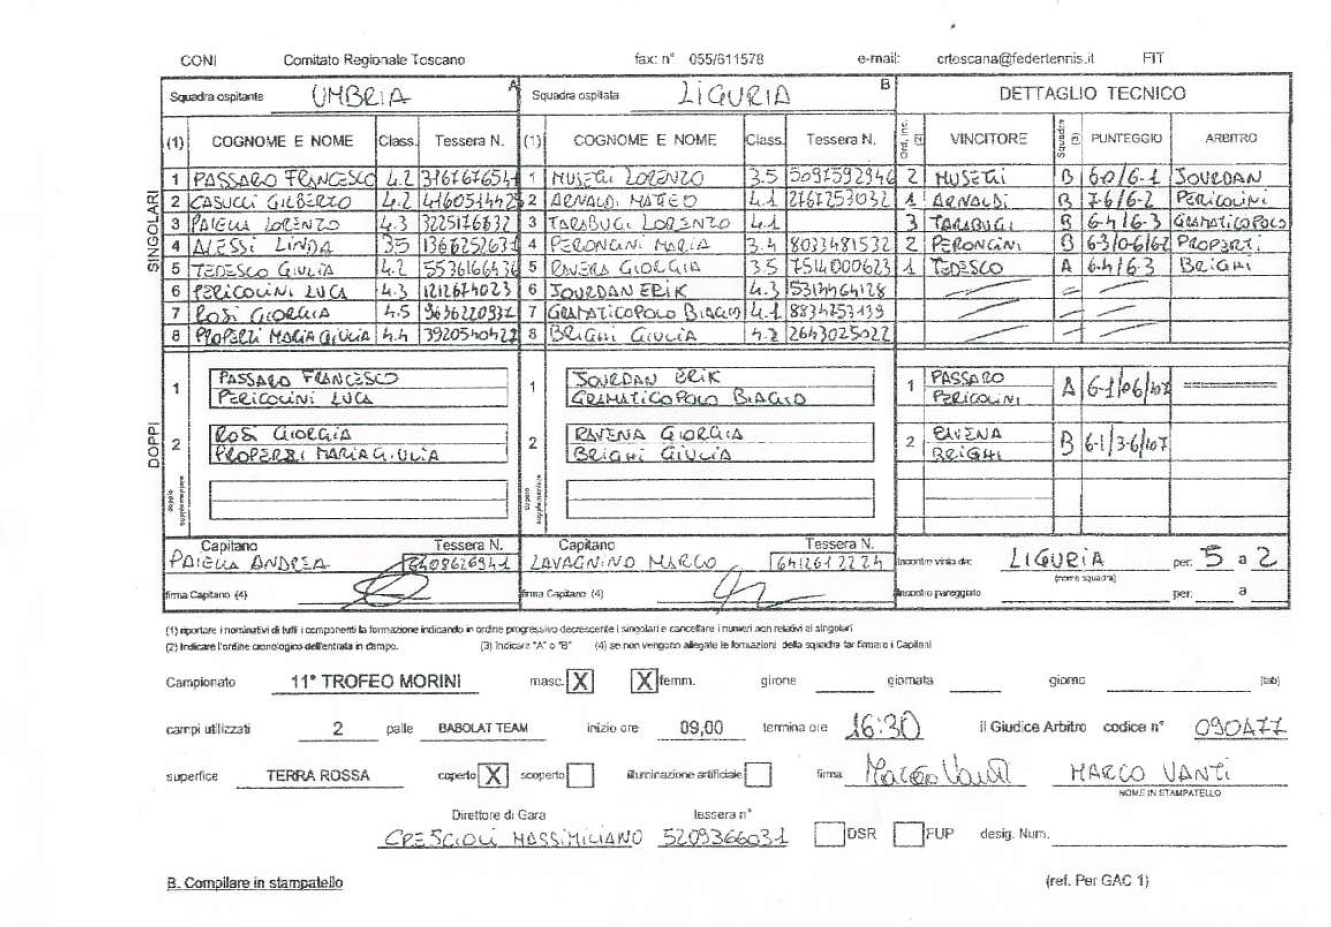 CONI Comitato Regionale Toscano fax: n° 055/611578 e-mail: crtoscana@federtennis.it FIT
Squadra ospitante UMBRIA A Squadra ospitata LIGURIA B DETTAGLIO TECNICO
(1) COGNOME E NOME Class. Tessera N. (1) COGNOME E NOME Class. Tessera N. Ord. inc. (2) VINCITORE Squadra (3) PUNTEGGIO ARBITRO
SINGOLARI
1 PASSARO FRANCESCO 4.2 1 MUSETTI LORENZO 3.5 2 MUSETTI B 6-0/6-1 JOURDAN
2 CASUCCI GILBERTO 4.2 2 ARNALDI MATTEO 4.1 2767253032 1 ARNALDI B 7-6/6-2 PERICOLINI
3 PAIELLA LORENZO 4.3 3225176632 3 TARABUGI LORENZO 4.1 3 TARABUGI B 6-4/6-3 GRAMATICOPOLO
4 ALESSI LINDA 35 4 PERONCINI MARIA 3.4 8033481532 2 PERONCINI B 6-3/0-6/6-2 PROPERZI
5 TEDESCO GIULIA 4.2 5536166436 5 RAVERA GIORGIA 3.5 7514000623 1 TEDESCO A 6-4/6-3 BRIGHI
6 PERICOLINI LUCA 4.3 1212674023 6 JOURDAN ERIK 4.3
7 ROSI GIORGIA 4.5 7 GRAMATICOPOLO BIAGIO 4.1
8 PROPERZI MARIA GIULIA 4.4 8 BRIGHI GIULIA 4.2 2643025022
DOPPI
1 PASSARO FRANCESCO 1 JOURDAN ERIK 1 PASSARO A
PERICOLINI LUCA GRAMATICOPOLO BIAGIO PERICOLINI
2 ROSI GIORGIA 2 RAVENA GIORGIA 2 B 6-1/3-6/107
PROPERZI MARIA GIULIA BRIGHI GIULIA BRIGHI
doppio supplementare doppio supplementare
Capitano Tessera N. Capitano Tessera N.
PAIELLA ANDREA LAVAGNINO MARCO 6412612224 Incontro vinto da: LIGURIA per: 5 a 2
(nome squadra)
firma Capitano (4) firma Capitano (4) Incontro pareggiato per: a
(1) riportare i nominativi di tutti i componenti la formazione indicando in ordine progressivo decrescente i singolari e cancellare i numeri non relativi ai singolari
(2) Indicare l'ordine cronologico dell'entrata in campo. (3) Indicare "A" o "B" (4) se non vengono allegate le formazioni della squadra far firmare i Capitani
Campionato 11° TROFEO MORINI masc. X X femm. girone giornata giorno (tab)
campi utilizzati 2 palle BABOLAT TEAM inizio ore 09,00 termina ore 16:30 il Giudice Arbitro codice n° 090477
superfice TERRA ROSSA coperto X scoperto illuminazione artificiale firma Marco Vanti MARCO VANTI
NOME IN STAMPATELLO
Direttore di Gara tessera n°
CRESCIOLI MASSIMILIANO 5209366031 DSR FUP desig. Num.
B. Compilare in stampatello (ref. Per GAC 1)